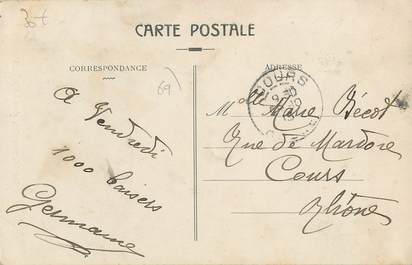 CARTE POSTALE
CORRESPONDANCE
ADRESSE
A Vendredi
1000 baisers
Germaine
Melle Marie Bécot
Rue de Mardore
Cours
Rhône
COURS
69